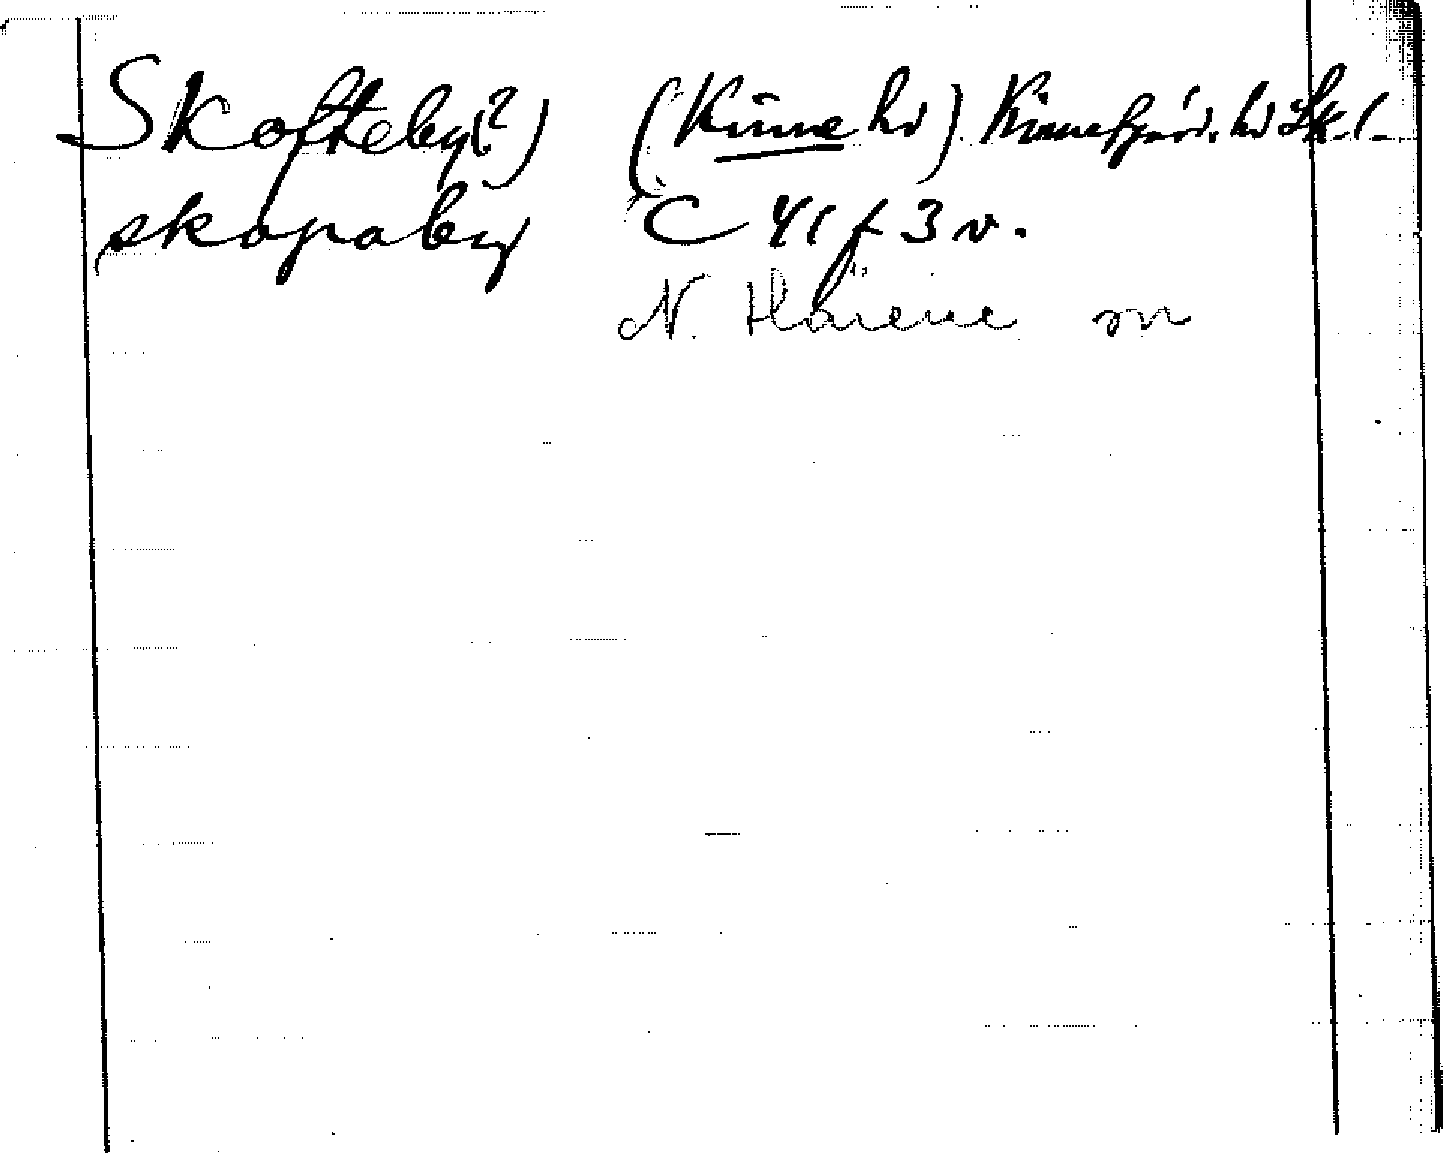 Skofteby(?) (Kinne hd) Kinnefjärd. hd Sk. l.
skapaby C 41 f 3 v.
N. Härene sn